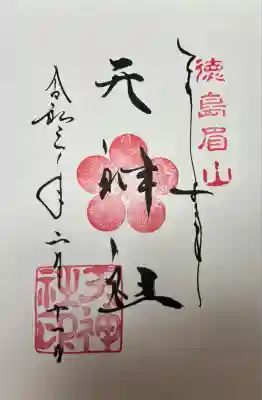 徳島眉山
天神社
令和三年二月十一日
天神
社印